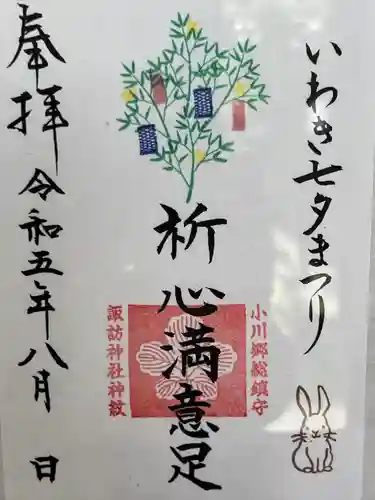 いわき七夕まつり
小川郷総鎮守
祈心満意足
諏訪神社神紋
奉拝
令和五年八月 日